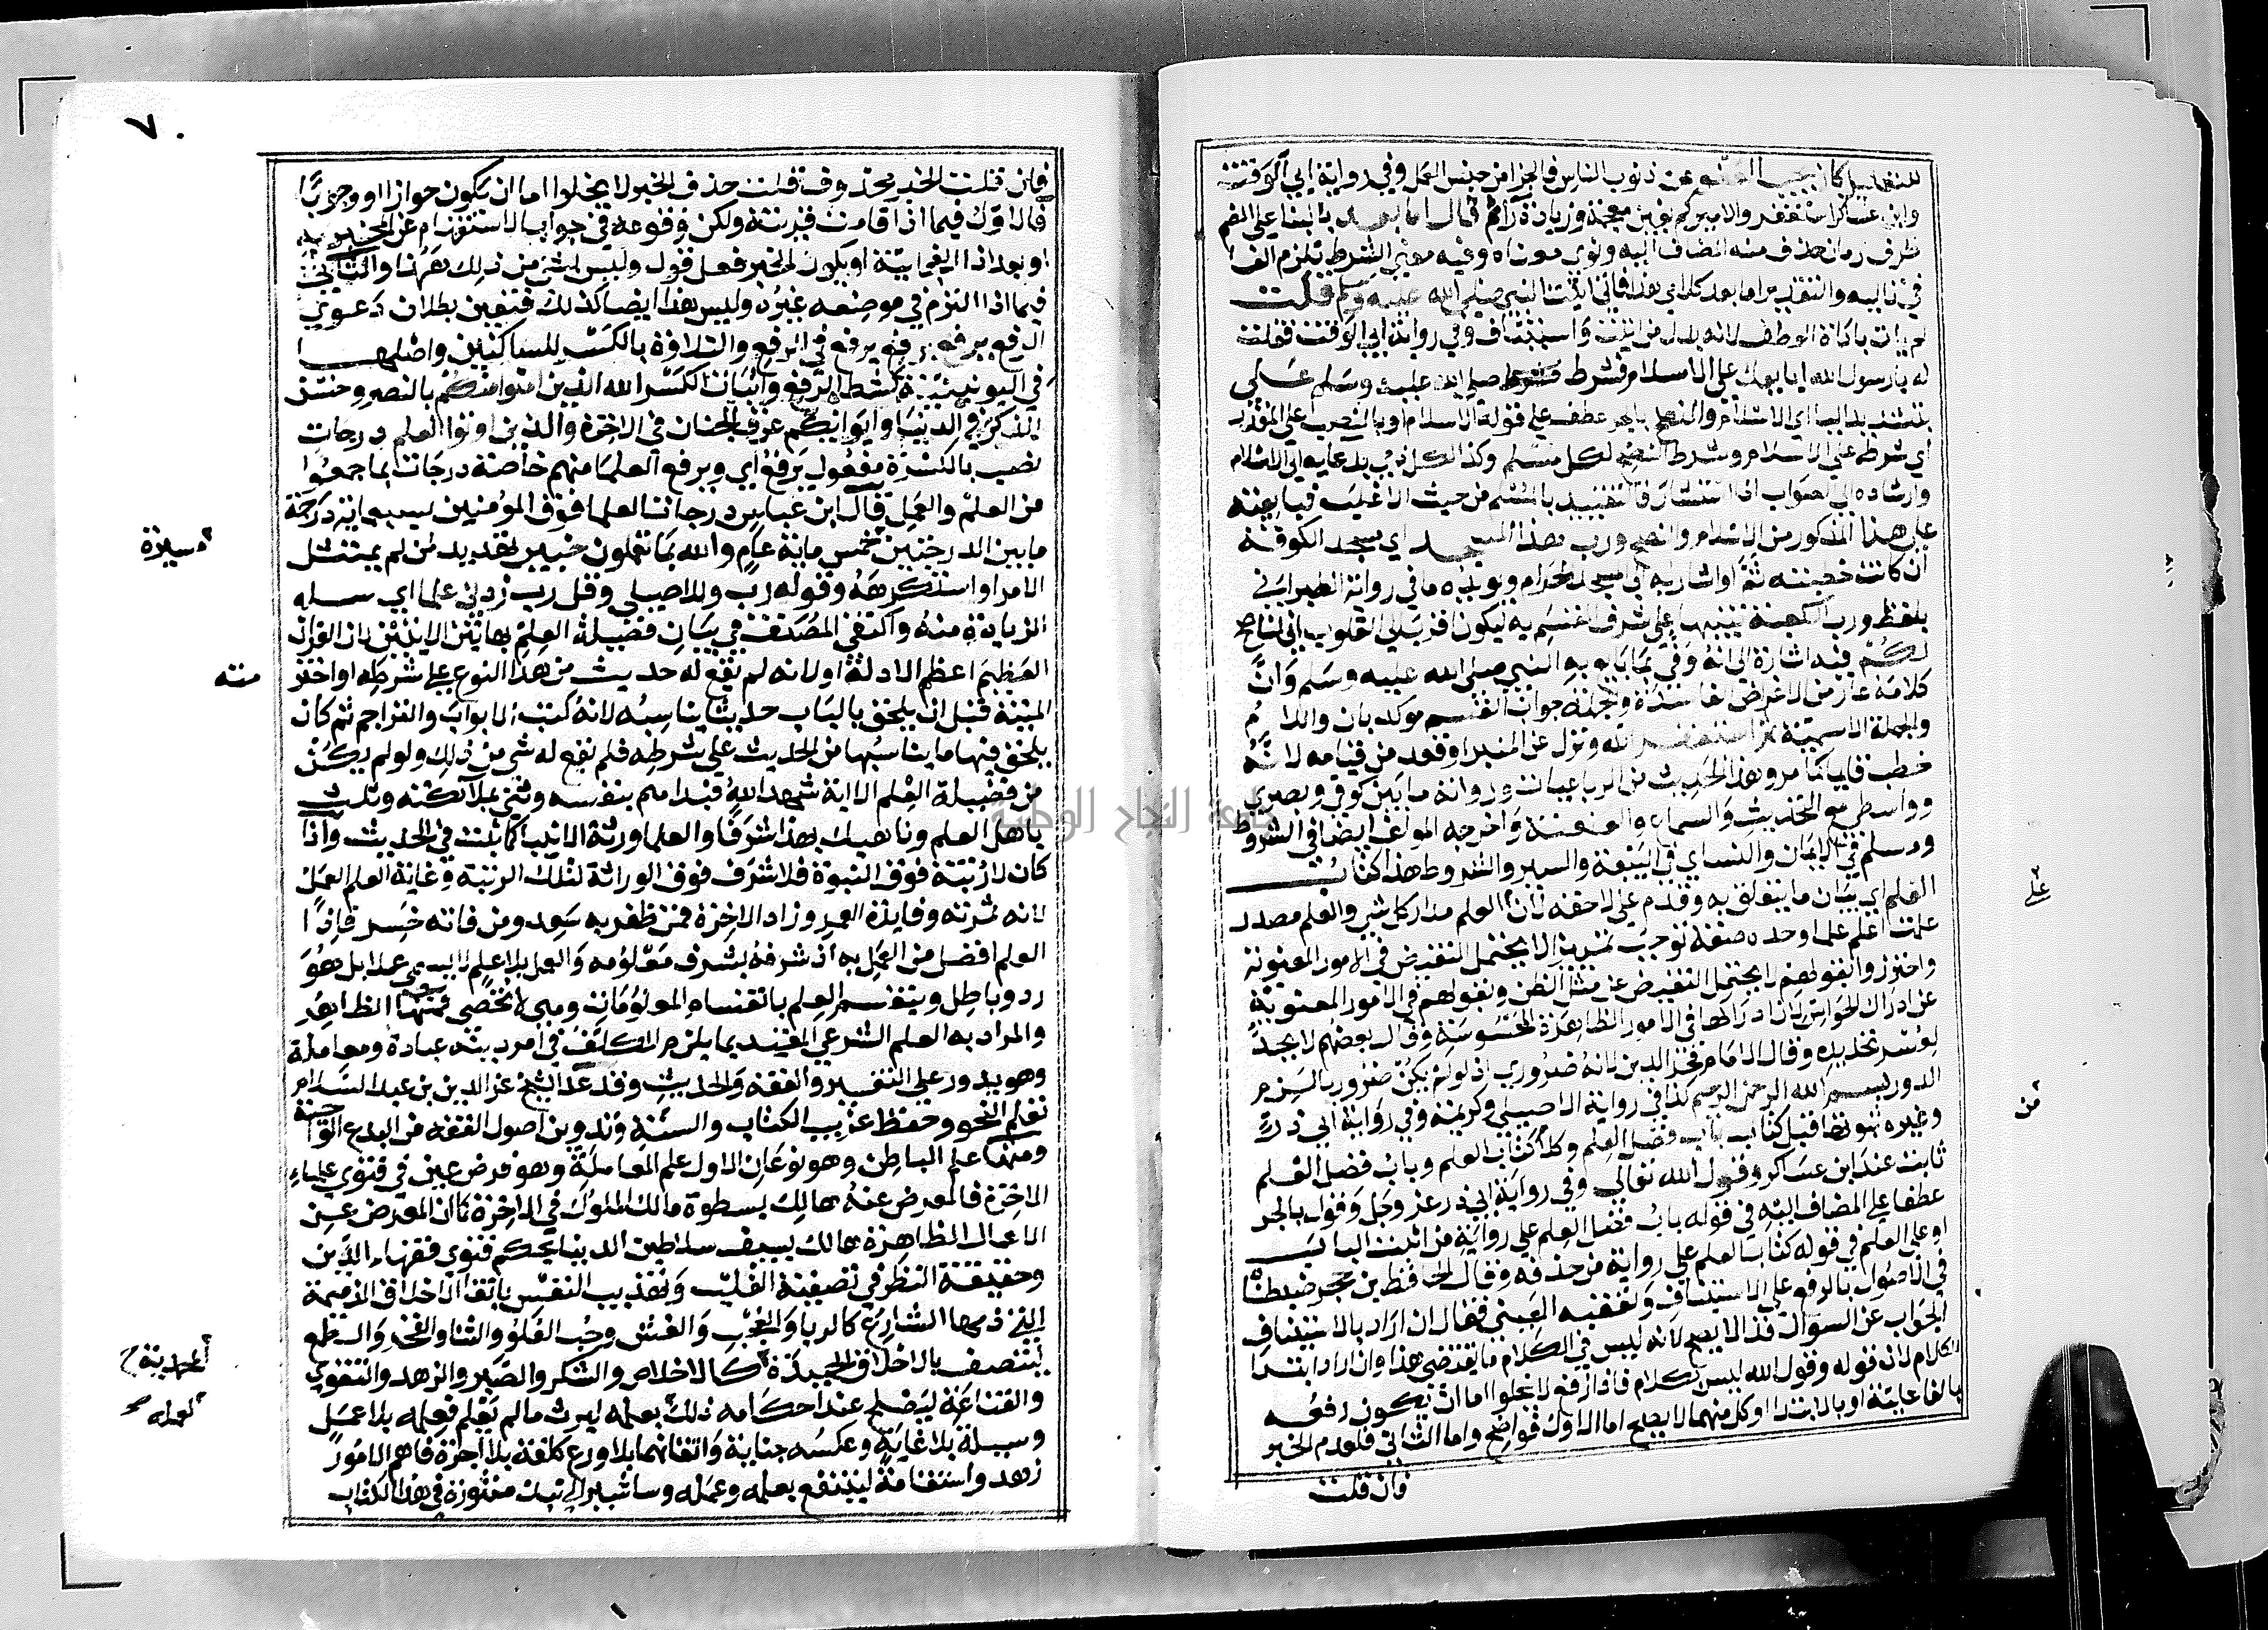 للتعليل كان يحب العفو عن ذنوب الناس فالجزا من جنس العمل وفي رواية ابي الوقت
وابن عساكر استغفروا لاميركم بغين معجمة وزيادة راء ثم قال اما بعد بالبنا على الضم
ظرف زمان حذف منه المضاف اليه ونوى معناه وفيه معنى الشرط تلزم الفا
في تاليه والتقدير اما بعد كلامي هذا فاني اتيت النبي صلى الله عليه وسلم قلت
لم يات باداة العطف لانه بدل من اتيت واستيناف وفي رواية ابي الوقت فقلت
له يا رسول الله ابايعك على الاسلام فشرط صلى الله عليه وسلم على
بتشديد اليا اي الاسلام والنصح بالجر عطف على قوله الاسلام وبالنصب على المقدر
اي شرط على الاسلام وشرط النصح لكل مسلم وكذا لكل ذمي بدعايه الى الاسلام
وارشاده الى الصواب اذا استشار فالتقييد بالمسلم من حيث الاغلب فبايعته
على هذا المذكور من الاسلام والنصح ورب هذا المسجد اي مسجد الكوفة
ان كانت خطبته ثم او اشار به الى المسجد الحرام ويويده ما في رواية الطبراني
بلفظ ورب الكعبة تنبيها على شرف المقسم به ليكون اقرب الى القلوب اني لناصح
لكم فيه اشارة الى انه وفى بما بايع به النبي صلى الله عليه وسلم وان
كلامه عار من الاغراض الفاسدة والجملة جواب القسم موكد بان واللام
والجملة الاسمية ثم استغفر الله ونزل عن المنبر او قعد من قيامه لانه
خطب قايما كما مر وهذا الحديث من الرباعيات ورواته ما بين كوفي وبصري
وواسطي مع التحديث والسماع والعنعنة واخرجه المولف ايضا في الشروط
ومسلم في الايمان والنساي في البيعة والسير والشروط هذا كتاب
العلم اي بيان ما يتعلق به وقدم على لاحقه لان العلم مدار كل شي والعلم مصدر
علمت اعلم علما وحده صفة توجب تمييزا لا يحتمل النقيض في الامور المعنوية
واحترزوا بقولهم لا يحتمل النقيض عن مثل الظن وبقولهم في الامور المعنوية
عن ادراك الحواس لان ادراكها في الامور الظاهرة المحسوسة وقال بعضهم لا يحد
لعسر تحديده وقال الامام فخر الدين لانه ضروري اذ لو لم يكن ضروريا لزم
الدور بسم الله الرحمن الرحيم كذا في رواية الاصيلي وكريمة وفي رواية ابي ذر
وغيره ثبوتها قبل كتاب باب فضل العلم وكذا كتاب العلم وباب فضل العلم
ثابت عند ابن عساكر وقول الله تعالى وفي رواية ابي ذر عز وجل وقول بالجر
عطفا على المضاف اليه في قوله باب فضل العلم على رواية من اثبت الباب
او على العلم في قوله كتاب العلم على رواية من حذفه وقال الحافظ بن حجر ضبطناه
في الاصول بالرفع على الاستيناف وتعقبه العيني فقال ان اراد بالاستيناف
الجواب عن السوال فذا لا يصح لانه ليس في الكلام ما يقتضي هذا وان اراد ابتدا
الكلام لان قوله وقول الله ليس بكلام فاذا رفع لا يخلوا اما ان يكون رفعه
بالفاعلية او بالابتدا وكل منهما لا يصح اما الاول فواضح واما الثاني فلعدم الخبر
فان قلت
على
من
٧٠
فان قلت الخبر محذوف قلت حذف الخبر لا يخلوا اما ان يكون جوازا او وجوبا
فالاول فيما اذا قامت قرينة ولكن وقوعه في جواب الاستفهام عن المخبر به
او بعد اذا الفجايية او يكون الخبر فعل قول وليس لشي من ذلك ههنا والثاني
فيما اذا التزم في موضعه غيره وليس هذا ايضا كذلك فتعين بطلان دعوى
الرفع يرفع برفع يرفع في الرفع والتلاوة بالكسر للساكنين واصلها
في اليونينية كشط الرفع واثبات الكسر الله الذين امنوا منكم بالنصر وحسن
الذكر في الدنيا وايوايكم غرف الجنان في الاخرة والذين اوتوا العلم درجات
نصب بالكسرة مفعول يرفع اي ويرفع العلما منهم خاصة درجات بما جمعوا
من العلم والعمل قال ابن عباس درجات العلما فوق المومنين بسبعماية درجة
ما بين الدرجتين خمس ماية عام والله بما تعملون خبير تهديد لمن لم يمتثل
الامر او استكرهه وقوله رب وللاصيلي وقل رب زدني علما اي سله
الزيادة منه واكتفى المصنف في بيان فضيلة العلم بهاتين الايتين لان القران
العظيم اعظم الادلة او لانه لم يقع له حديث من هذا النوع على شرطه او اخترمته
المنية قبل ان يلحق بالباب حديثا يناسبه لانه كتب الابواب والتراجم ثم كان
يلحق فيها ما يناسبها من الحديث على شرطه فلم يقع له شي من ذلك ولو لم يكن
من فضيلة العلم الا اية شهد الله فبدا بنفسه وثنى بملايكته وثلث
باهل العلم وناهيك بهذا شرفا والعلما ورثة الانبيا كما ثبت في الحديث واذا
كان لا رتبة فوق النبوة فلا شرف فوق الوراثة لتلك الرتبة وغاية العلم العمل
لانه ثمرته وفايدة العمر وزاد الاخرة فمن ظفر به سعد ومن فاته خسر فاذا
العلم افضل من العمل به اذ شرفه بشرف معلومه والعمل بلا علم لا يسمى عملا بل هو
رد وباطل وينقسم العلم بانقسام المعلومات وهي لا تحصى فمنها الظاهر
والمراد به العلم الشرعي المفيد بما يلزم المكلف في امر دينه عبادة ومعاملة
وهو يدور على التفسير والفقه والحديث وقد عد الشيخ عز الدين بن عبد السلام
تعلم النحو وحفظ غريب الكتاب والسنة وتدوين اصول الفقه من البدع الواجبة
ومنها علم الباطن وهو نوعان الاول علم المعاملة وهو فرض عين في فتوى علماء
الاخرة فالمعرض عنه هالك بسطوة مالك الملوك في الاخرة كما ان المعرض عن
الاعمال الظاهرة هالك بسيف سلاطين الدنيا بحكم فتوى فقهاء الدين
وحقيقة النظر في تصفية القلب وتهذيب النفس باتقا الاخلاق الذميمة
التي ذمها الشارع كالريا والعجب والغش وحب العلو والثنا والفخر والطمع
ليتصف بالاخلاق الحميدة كالاخلاص والشكر والصبر والزهد والتقوى
والقناعة ليصلح عند احكامه ذلك بعلمه ليرث ما لم يعلم فعلمه بلا عمل
وسيلة بلا غاية وعكسه جناية واتقانهما بلا ورع كلفة بلا اجرة فاهم الامور
زهد واستقامة لينتفع بعلمه وعمله وساشير الى نبذ منثورة في هذا الكتاب
مته
لعمله
جامعة النجاح الوطنية